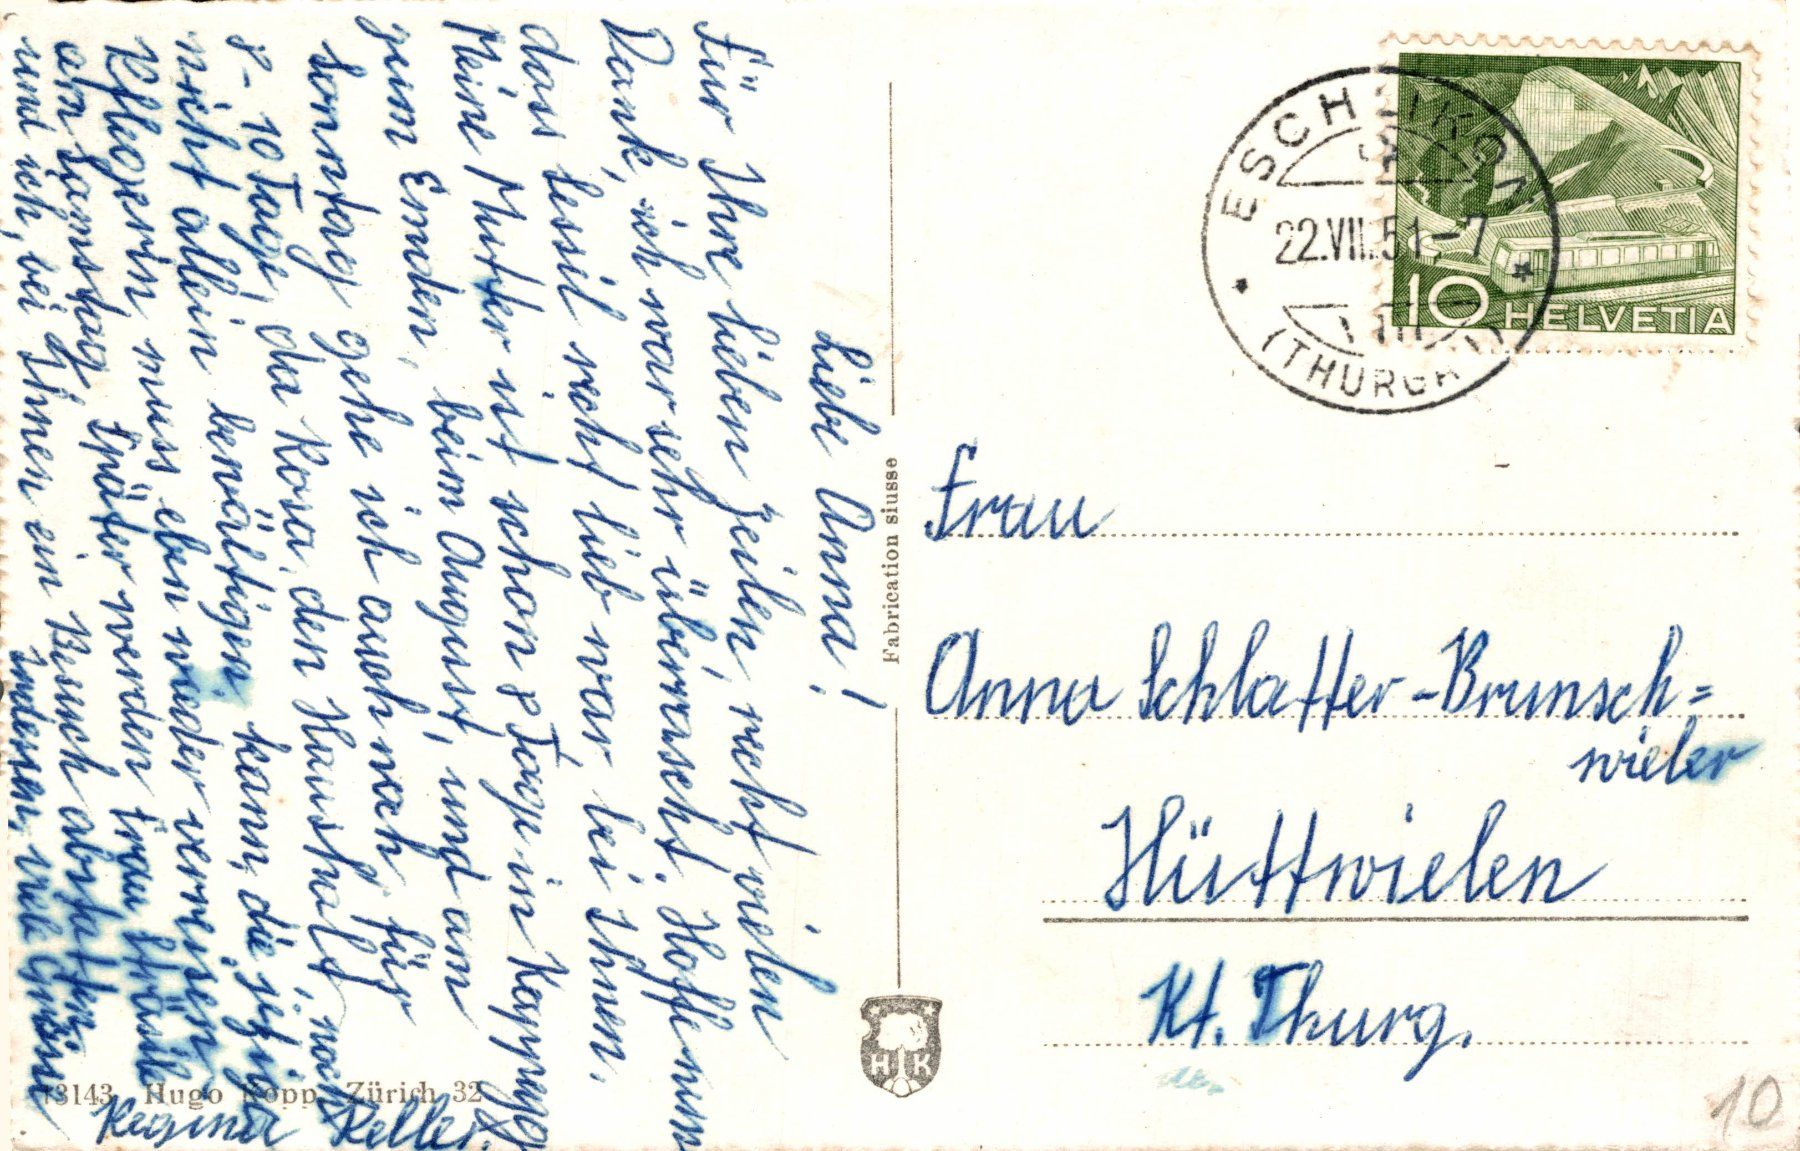 Liebe Anna!
Für Ihre lieben Zeilen, recht vielen
Dank, ich war sehr überrascht. Hoffe nun
das Lessil recht lieb war, bei Ihnen.
Meine Mutter ist schon 8 Tage in
zum Emden, beim August, und am
Sonntag gehe ich auch nach, für
8-10 Tage, da Rosa, den Haushalt, noch
nicht allein bewältigen kann, die jetzige
Pflegerin muss eben wieder verreisen
am Samstag. Später werden Frau Sträule
und ich, bei Ihnen ein Besuch abstatten.
Indessen, viele Grüsse
Regina Keller.
Fabrication siusse
H K
13143 Hugo Kopp, Zürich 32
ESCHLIKON
22.VII.51.-7
(THURGAU)
10 HELVETIA
Frau
Anna Schlatter-Brunsch=
wieler
Hüttwielen
Kt. Thurg.
10